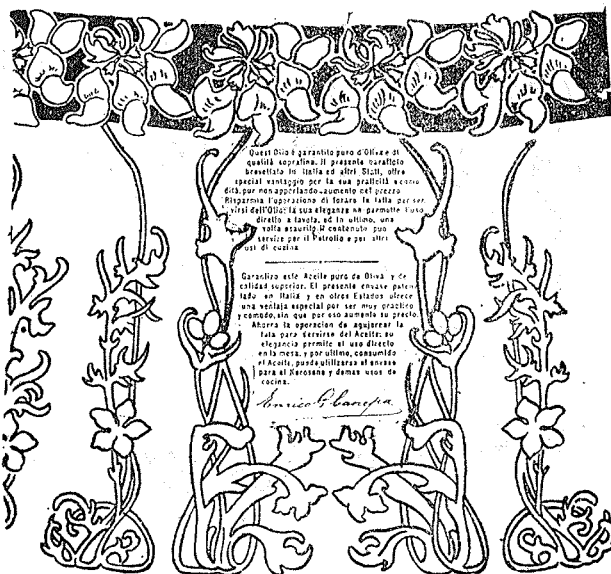 Quest'Olio è garantito puro d'Oliva e di
qualità soprafina. Il presente
brevettato in Italia ed altri Stati, offre
special vantaggio per la sua praticità e como
dità, pur non apportando aumento nel prezzo
Risparmia l'operazione di forare la latta per ser
virsi dell'Olio; la sua eleganza ne permette l'uso
diretto a tavola, ed in ultimo, una
volta esaurito il contenuto può
servire per il Petrolio e per altri
usi di cucina
Garantizo este Aceite puro de Oliva y de
calidad superior. El presente envase paten
tado en Italia y en otros Estados ofrece
una ventaja especial por ser muy practico
y comodo, sin que por eso aumente su precio.
Ahorra la operacion de agujerear la
lata para servirse del Aceite; su
elegancia permite el uso directo
en la mesa, y por ultimo, consumido
el Aceite, puede utilizarse el envase
para el Kerosene y demas usos de
cocina.
Enrico G. Canepa